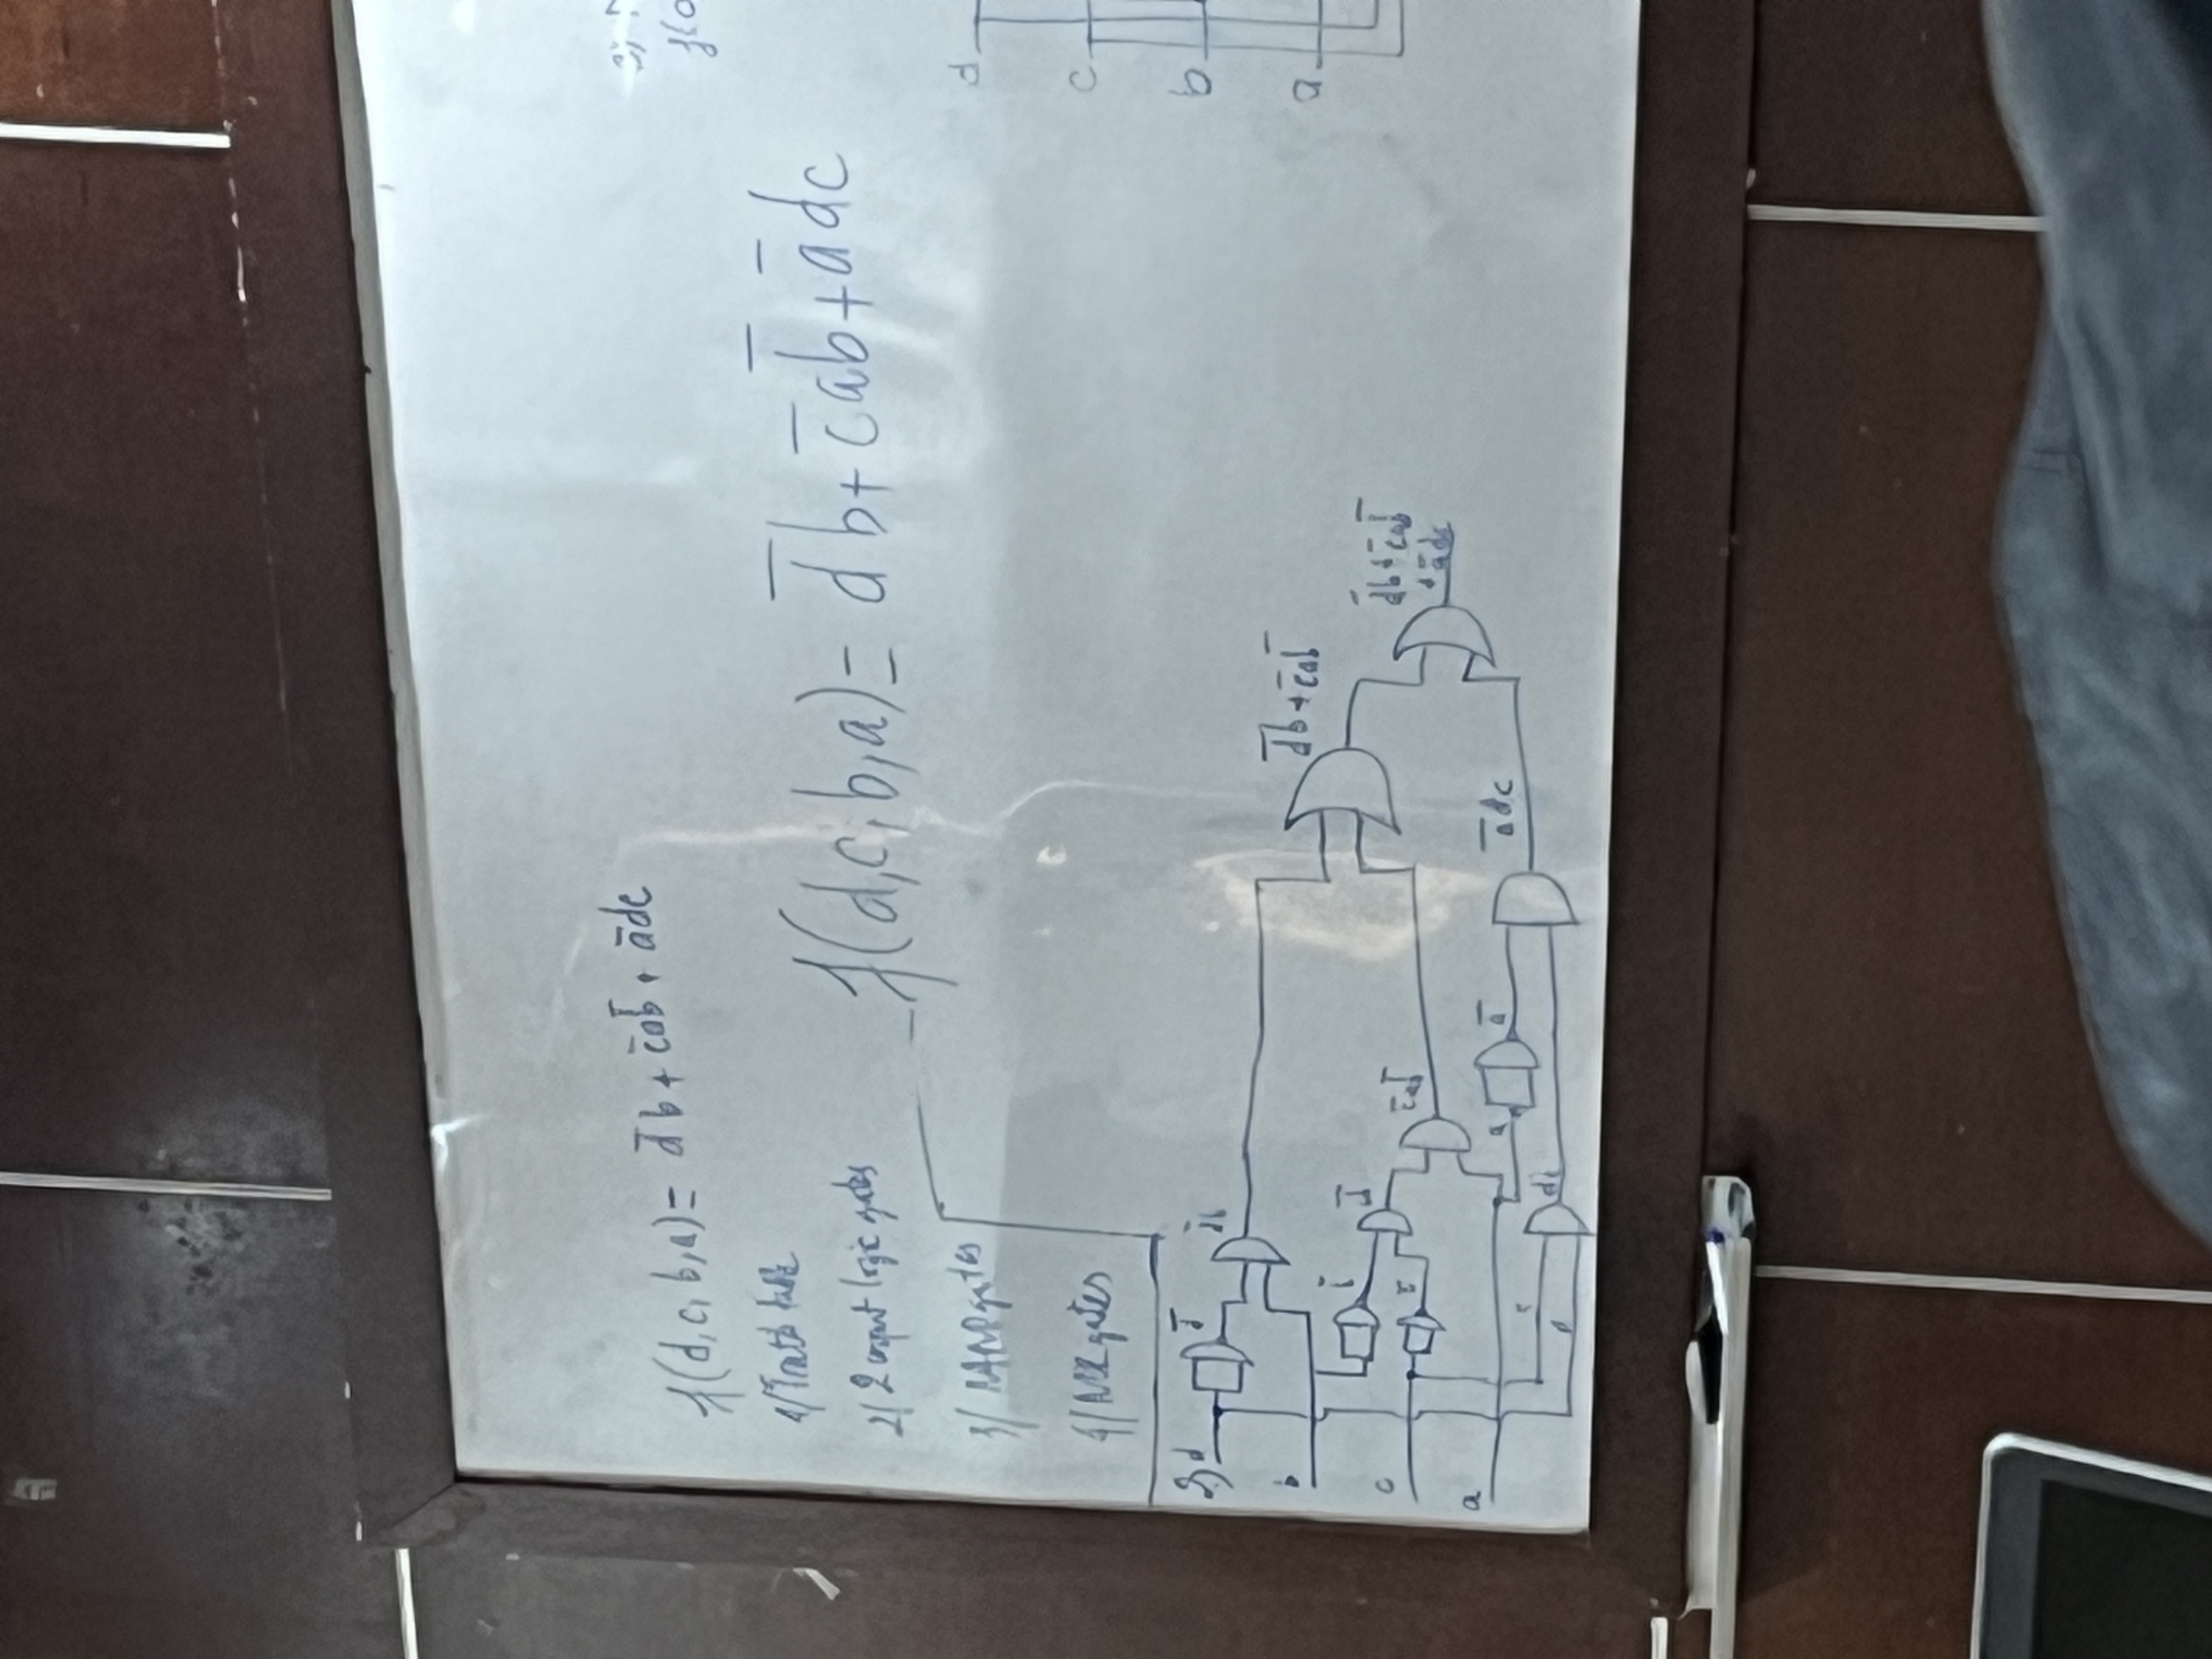 f(d,c,b,a)= d̅b + c̅ab̅ + a̅dc
1/ Truth table
2/ 2 input logic gates
3/ NAND gates
4/ NOR gates
f(d,c,b,a)= d̅b+c̅ab̅+a̅dc
2) d
d̅
d̅b
b
c
c̅
c̅ab̅
a
a
a̅
dc
a̅dc
d̅b+c̅ab̅
d̅b+c̅ab̅
+a̅dc
d
c
b
a